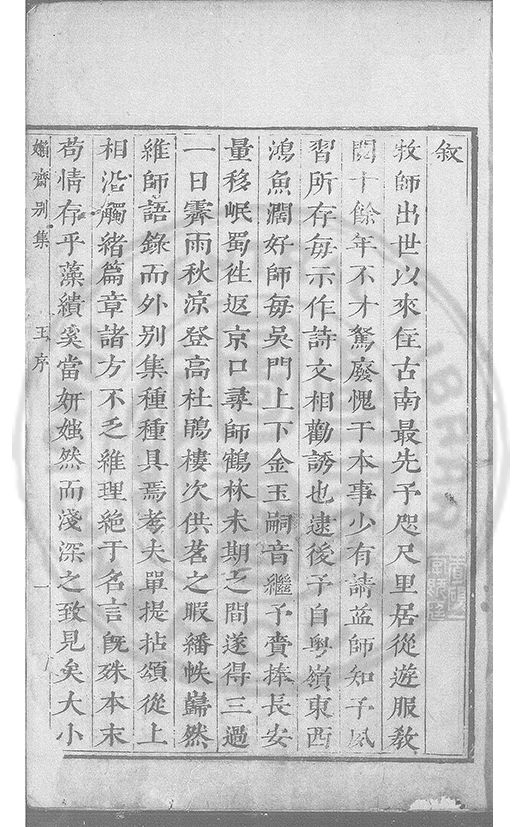 敘
牧師出世以來住古南最先予咫尺里居從遊服教
閱十餘年不才駑廢愧于本事少有請益師知予夙
習所存每示作詩文相勸誘也逮後予自粵嶺東西
鴻魚濶好師每吳門上下金玉嗣音繼予賚捧長安
量移岷蜀徃返京口尋師鶴林未期之間遂得三過
一日霽雨秋涼登高杜鵑樓次供茗之暇繙帙巋然
維師語錄而外別集種種具焉考夫單提拈頌從上
相沿觸緒篇章諸方不乏維理絶于名言旣殊本末
苟情存乎藻繢奚當妍媸然而淺深之致見矣大小
嬾齋别集
王序
一